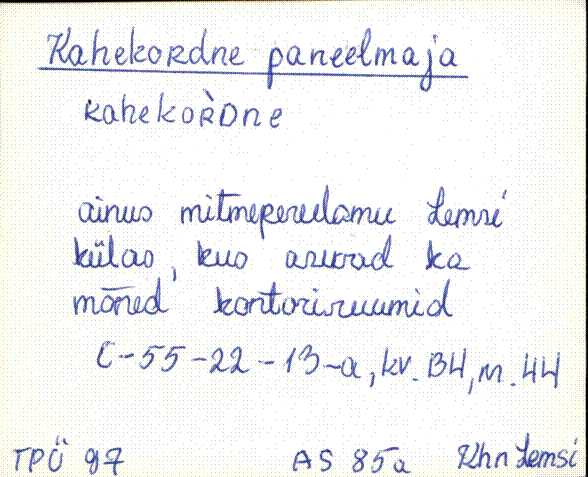 Kahekordne paneelmaja
kahekoR̀Dne
ainus mitmepereelamu Lemsi
külas, kus asuvad ka
mõned kontoriruumid
C-55-22-13-a, kv. B4, n. 44
TPÜ 97 AS 85a Khn Lemsi